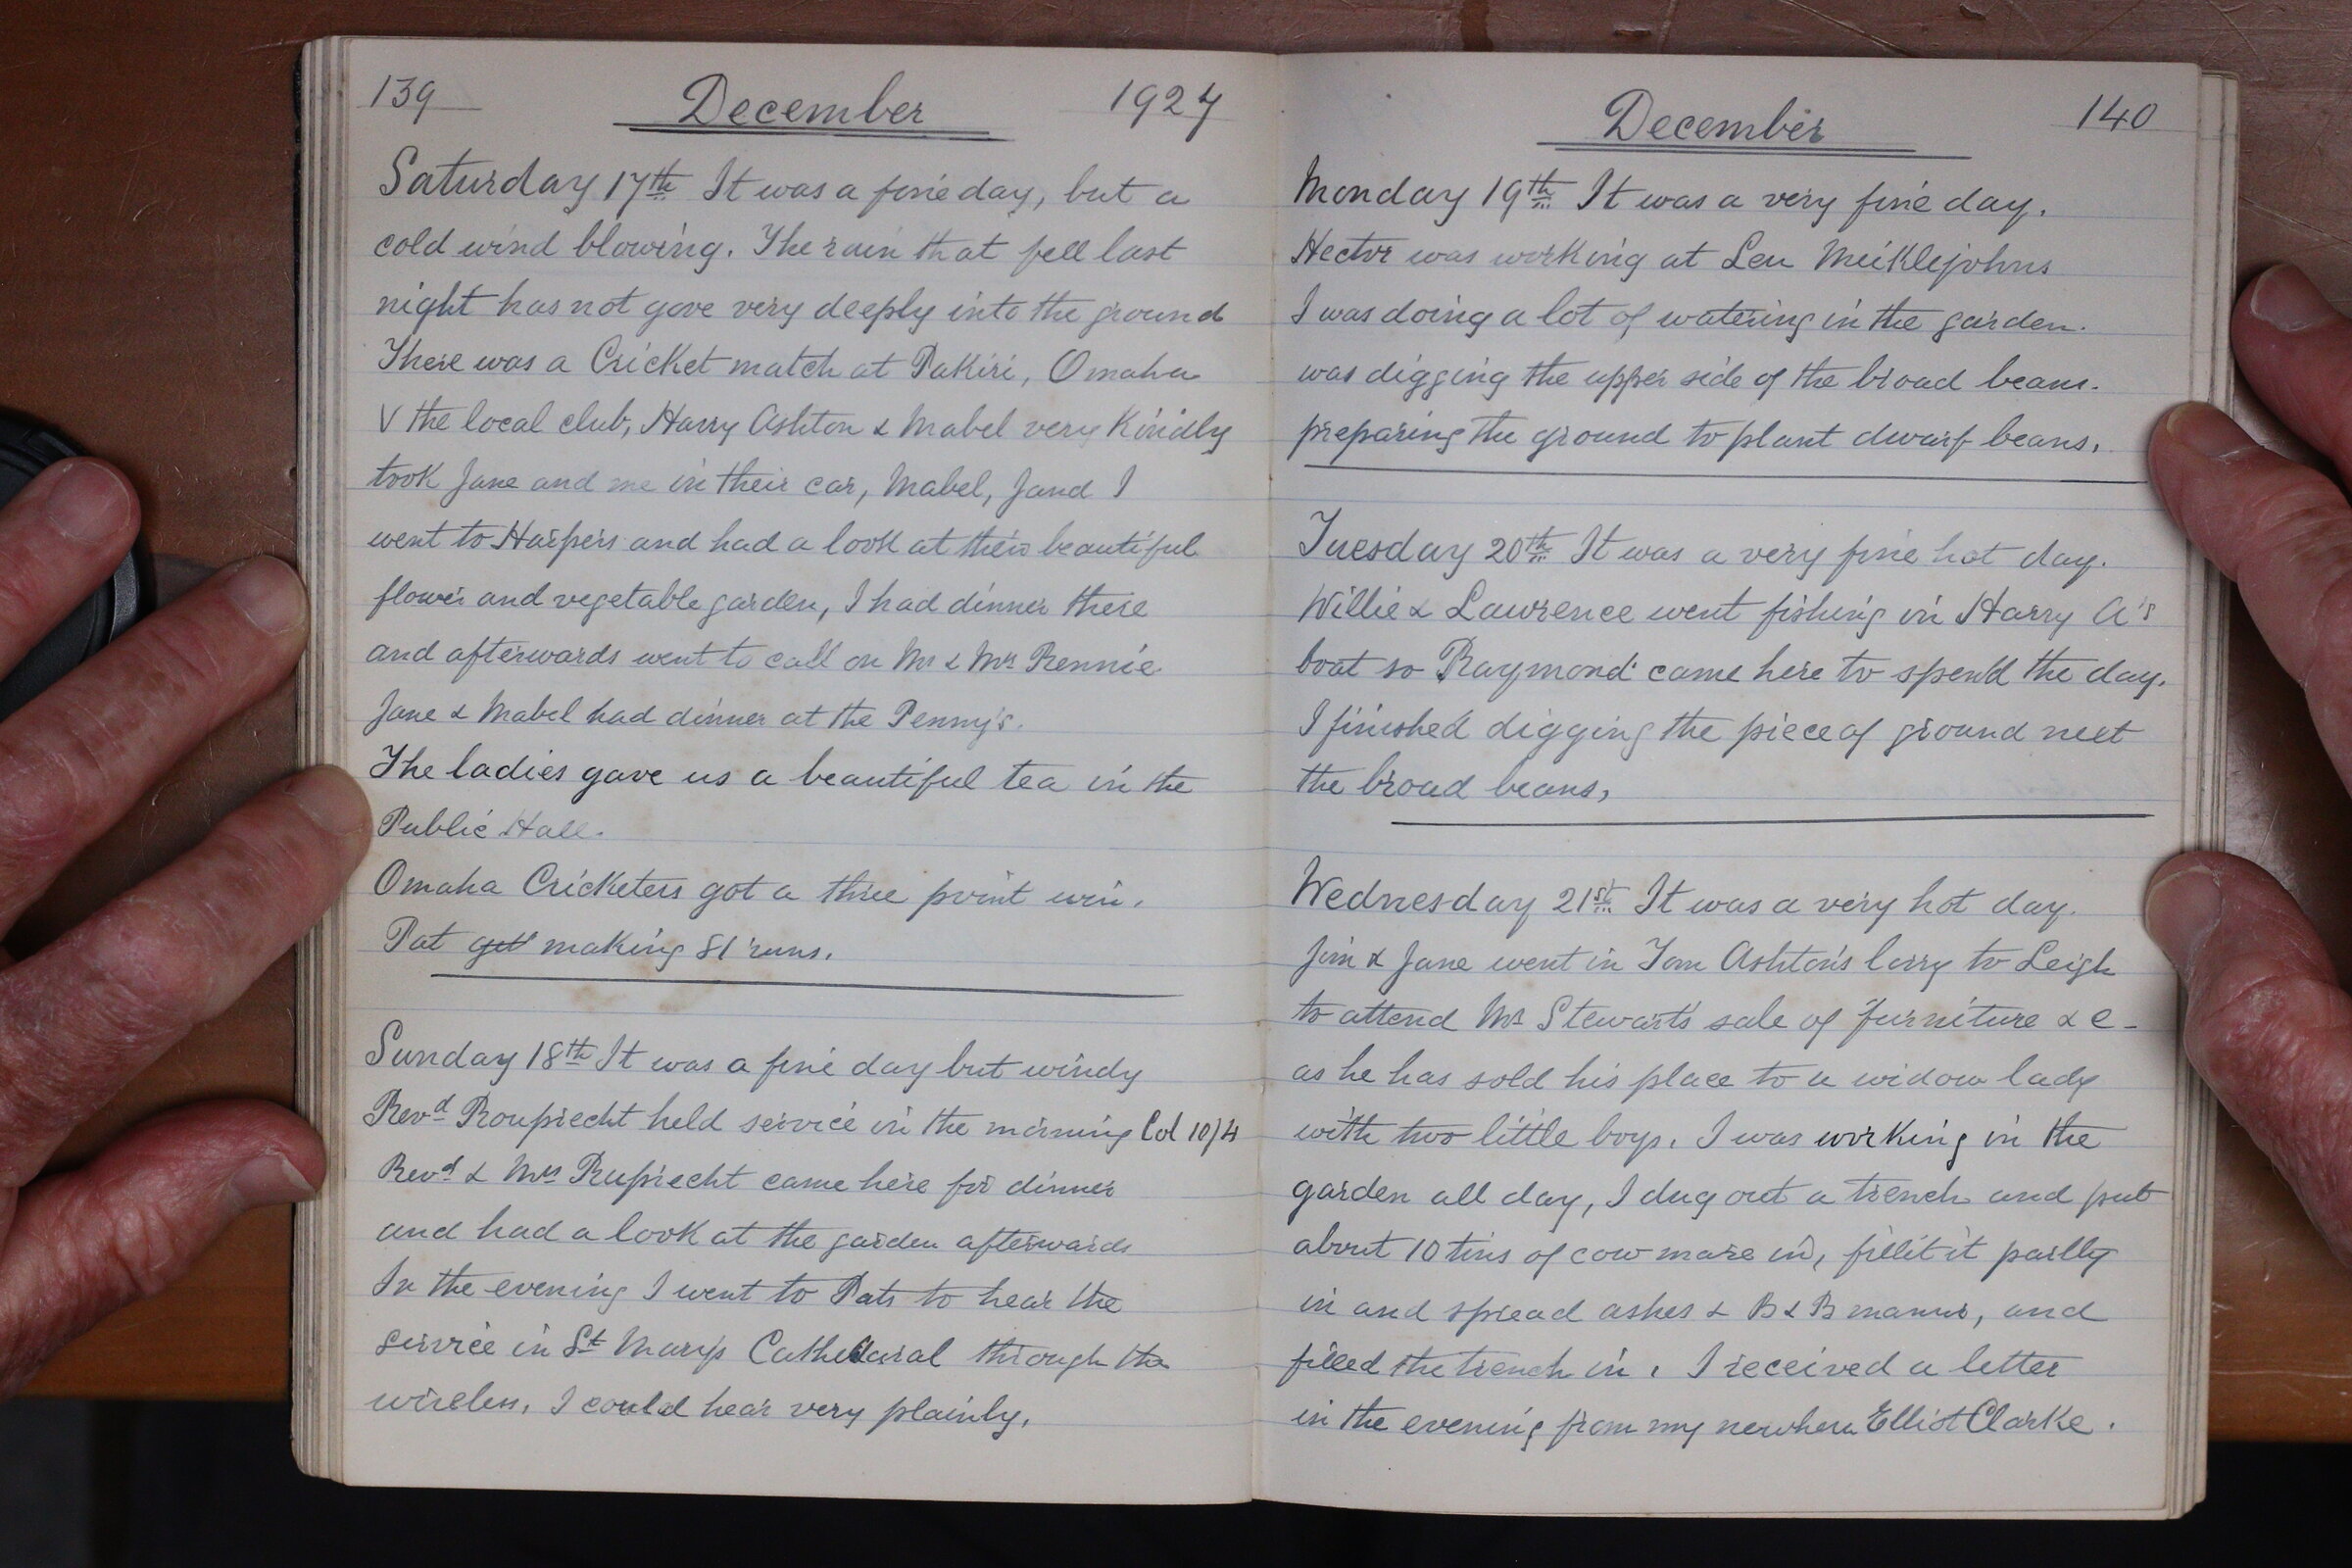 139 December 1927
Saturday 17th It was a fine day, but a
cold wind blowing. The rain that fell last
night has not gove very deeply into the ground
There was a Cricket match at Pakiri, Omaha
V the local club, Harry Ashton & Mabel very Kindly
took Jane and me in their car, Mabel, J and I
went to Harpers and had a look at their beautiful
flower and vegetable garden, I had dinner there
and afterwards went to call on Mr & Mrs Rennie.
Jane & Mabel had dinner at the Penny's.
The ladies gave us a beautiful tea in the
Public Hall.
Omaha Cricketers got a three point win.
Pat got making 81 runs.
Sunday 18th It was a fine day but windy
Revd Rouprecht held service in the morning Col 10/4
Revd & Mrs Ruprecht came here for dinner
and had a look at the garden afterwards
In the evening I went to Pats to hear the
service in St Marys Cathedaral through the
wireless. I could hear very plainly.
December 140
Monday 19th It was a very fine day.
Hector was working at Len Meiklejohns
I was doing a lot of watering in the garden.
was digging the upper side of the broad beans.
preparing the ground to plant dwarf beans.
Tuesday 20th It was a very fine hot day.
Willie & Lawrence went fishing in Harry A's
boat so Raymond came here to spend the day.
I finished digging the piece of ground next
the broad beans,
Wednesday 21st It was a very hot day.
Jim & Jane went in Tom Ashton's lorry to Leigh
to attend Mr Stewart's sale of furniture & c-
as he has sold his place to a widow lady
with two little boys. I was working in the
garden all day, I dug out a trench and put
about 10 tins of cow mare in, fillit it partly
in and spread ashes & B & B manur, and
filled the trench in. I received a letter
in the evening from my newhew Elliot Clarke.